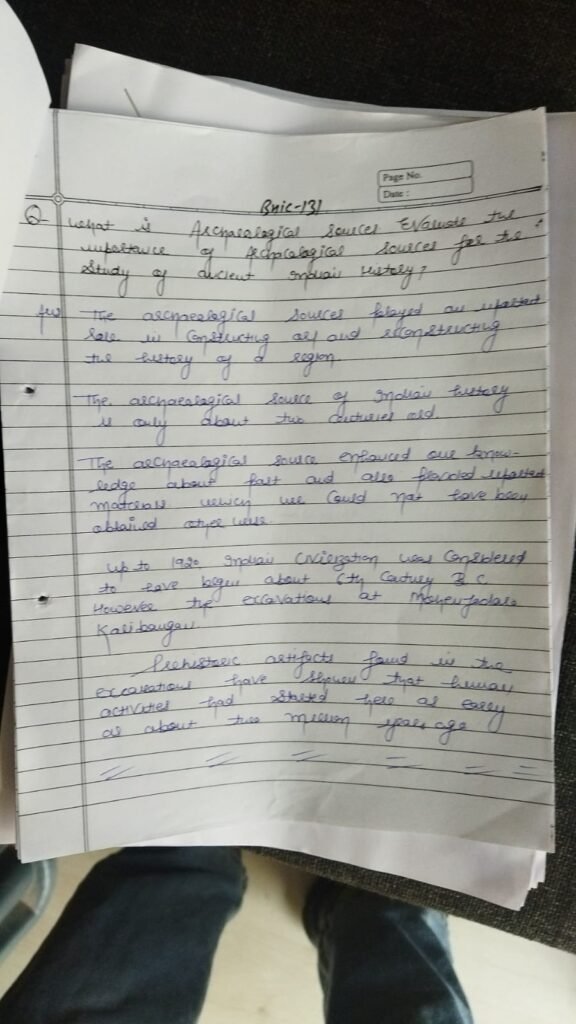 Page No.
Date :
BHIC-131
Q- What is Archaeological Sources Evaluate the
importance of Archaeological sources for the
Study of ancient Indian History?
The archaeological sources played an important
role in Constructing and reconstructing
the history of a region.
The archaeological source of Indian history
is only about two centuries old.
The archaeological source enhanced our know-
ledge about past and also provided important
materials which we could not have been
obtained otherwise.
Up to 1920 Indian Civilization was Considered
to have begun about 6th Century B.C.
However the excavations at
Kalibangan.
Prehistoric artifacts found in the
excavations have shown that human
activities had started here as early
as about two million years ago